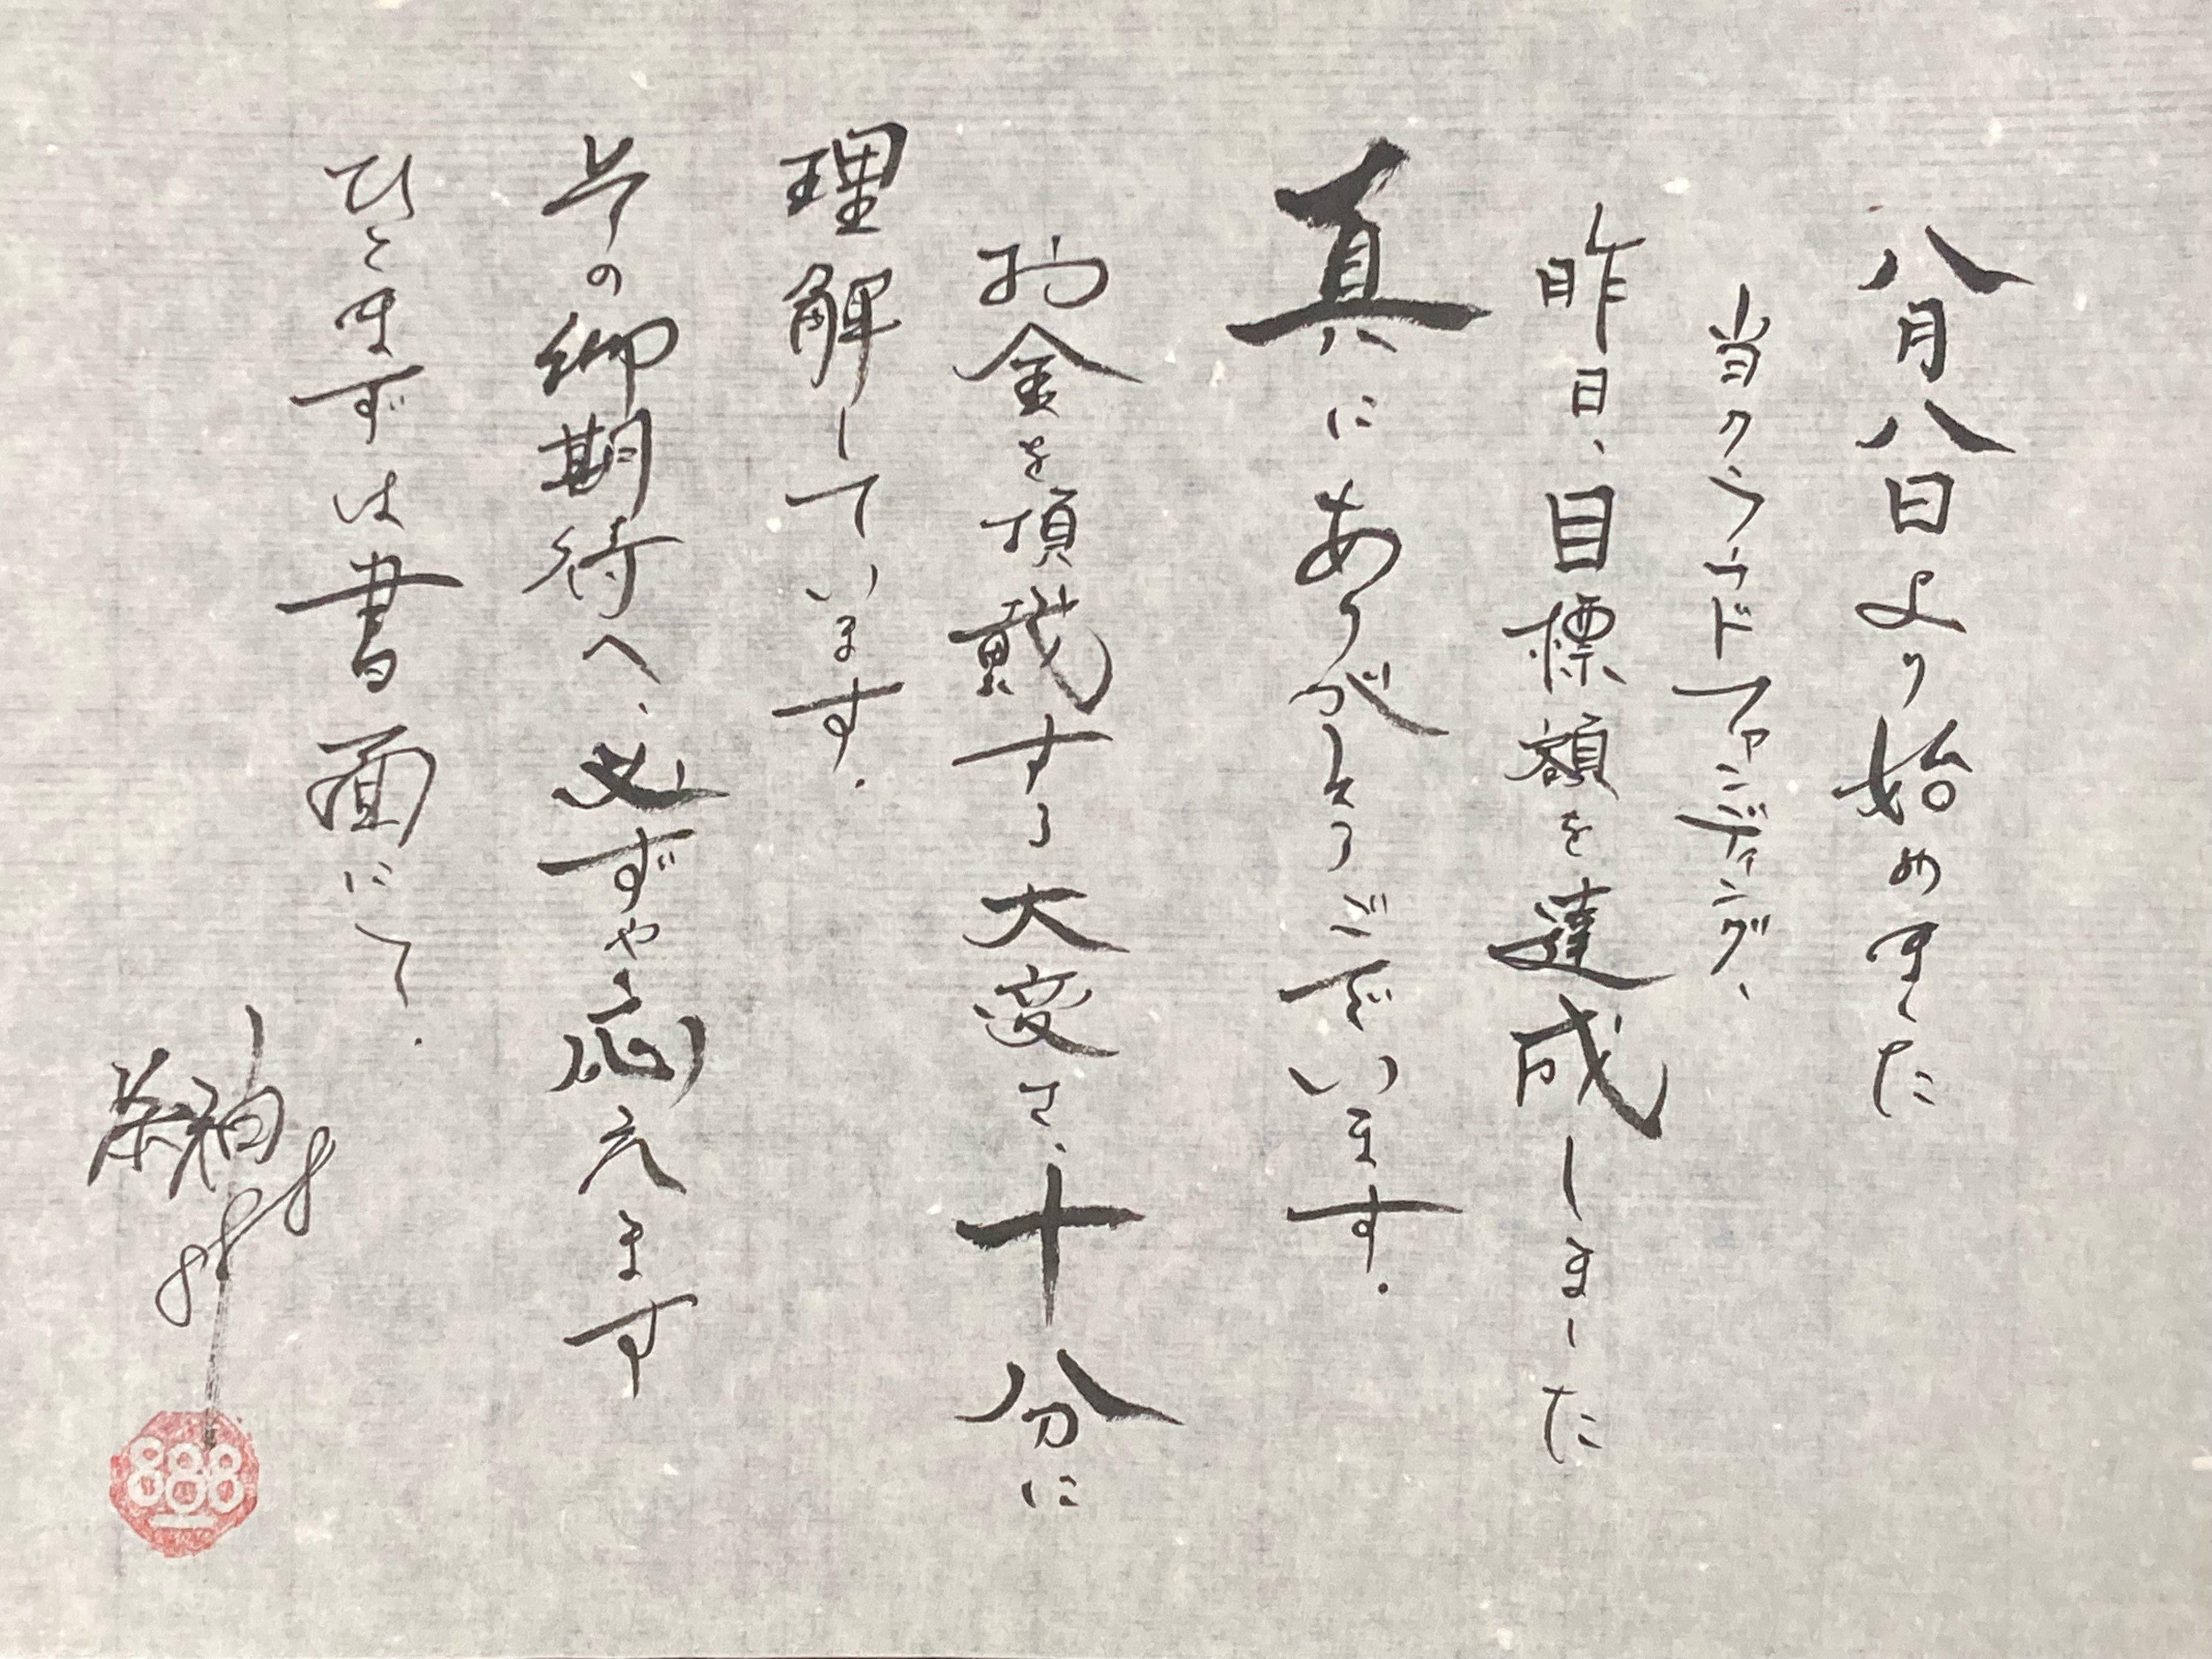 八月八日より始めました
当クラウドファンディング、
昨日、目標額を達成しました
真にありがとうございます。
お金を頂戴する大変さ、十分に
理解しています。
その御期待へ、必ずや応えます
ひとまずは書面にて。
888